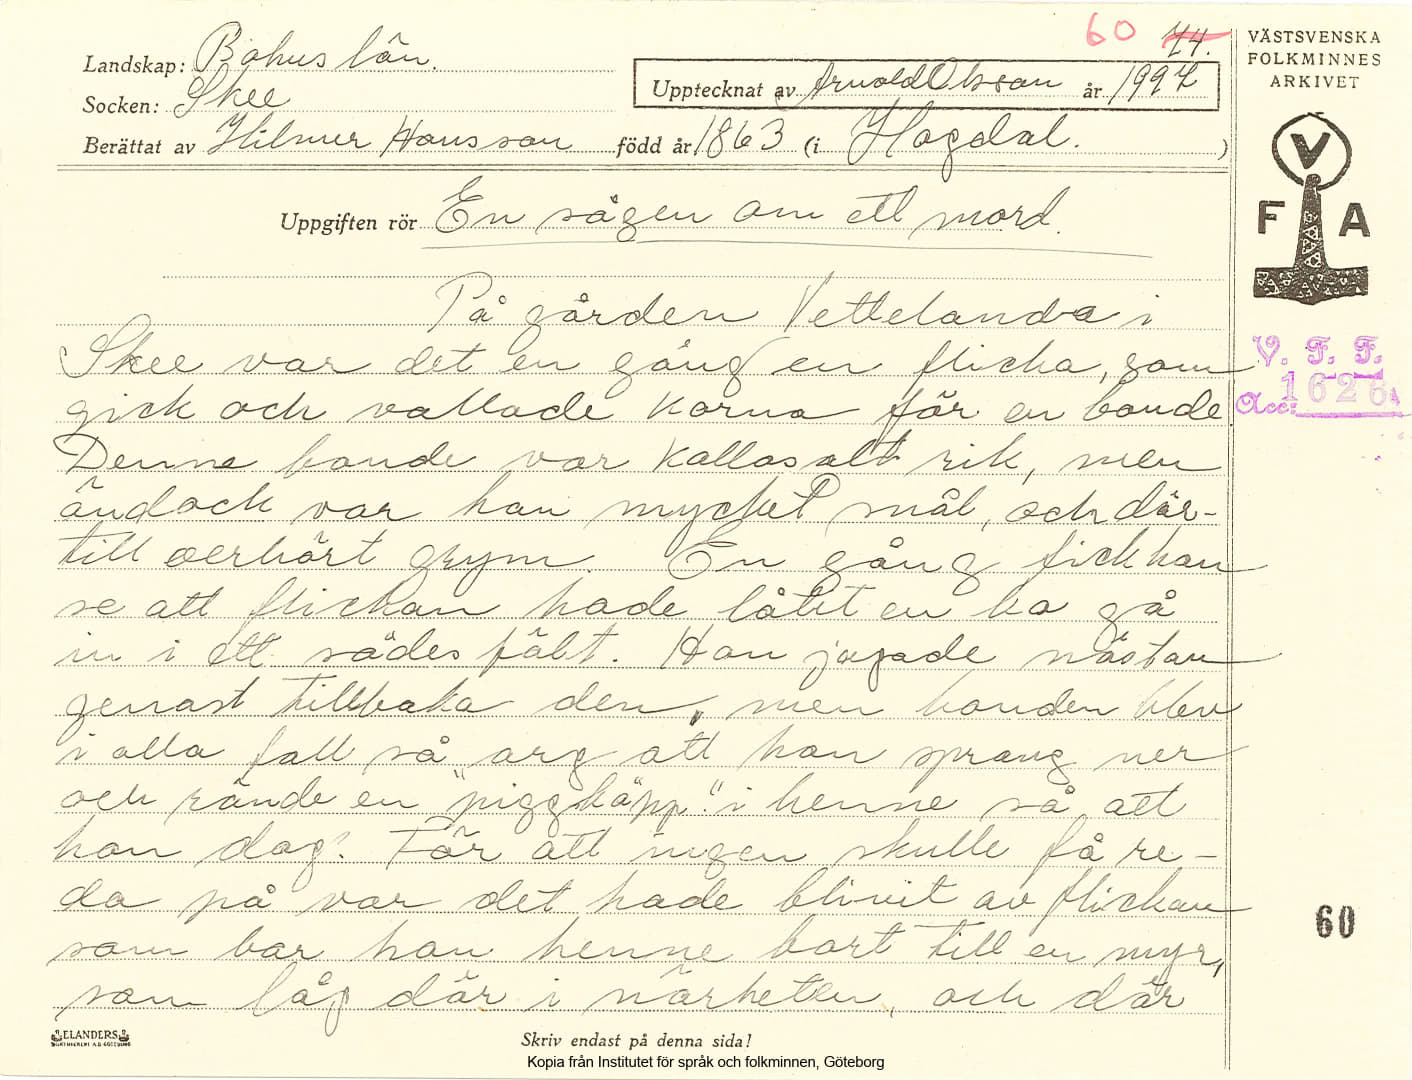 60 44.
Landskap: Bohuslän.
Socken: Skee
Upptecknat av Arnold Olsson år 1927
Berättat av Hilmer Hansson född år 1863 (i Hogdal. )
Uppgiften rör En sägen om ett mord.
På gården Vettelanda i
Skee var det en gång en flicka, som
gick och vallade korna för en bonde
Denne bonde var kollosalt rik, men
ändock var han mycket snål, och där-
till oerhört grym. En gång fick han
se att flickan hade låtit en ko gå
in i ett sädesfält. Hon jagade nästan
genast tillbaka den, men bonden blev
i alla fall så arg att han sprang ner
och rände en "piggkäpp" i henne så att
hon dog. För att ingen skulle få re-
da på var det hade blivit av flickan
som bar han henne bort till en myr,
som låg där i närheten, och där
VÄSTSVENSKA
FOLKMINNES
ARKIVET
V
F A
V. F. F.
Acc: 1626
60
ELANDERS
Skriv endast på denna sida!
Kopia från Institutet för språk och folkminnen, Göteborg